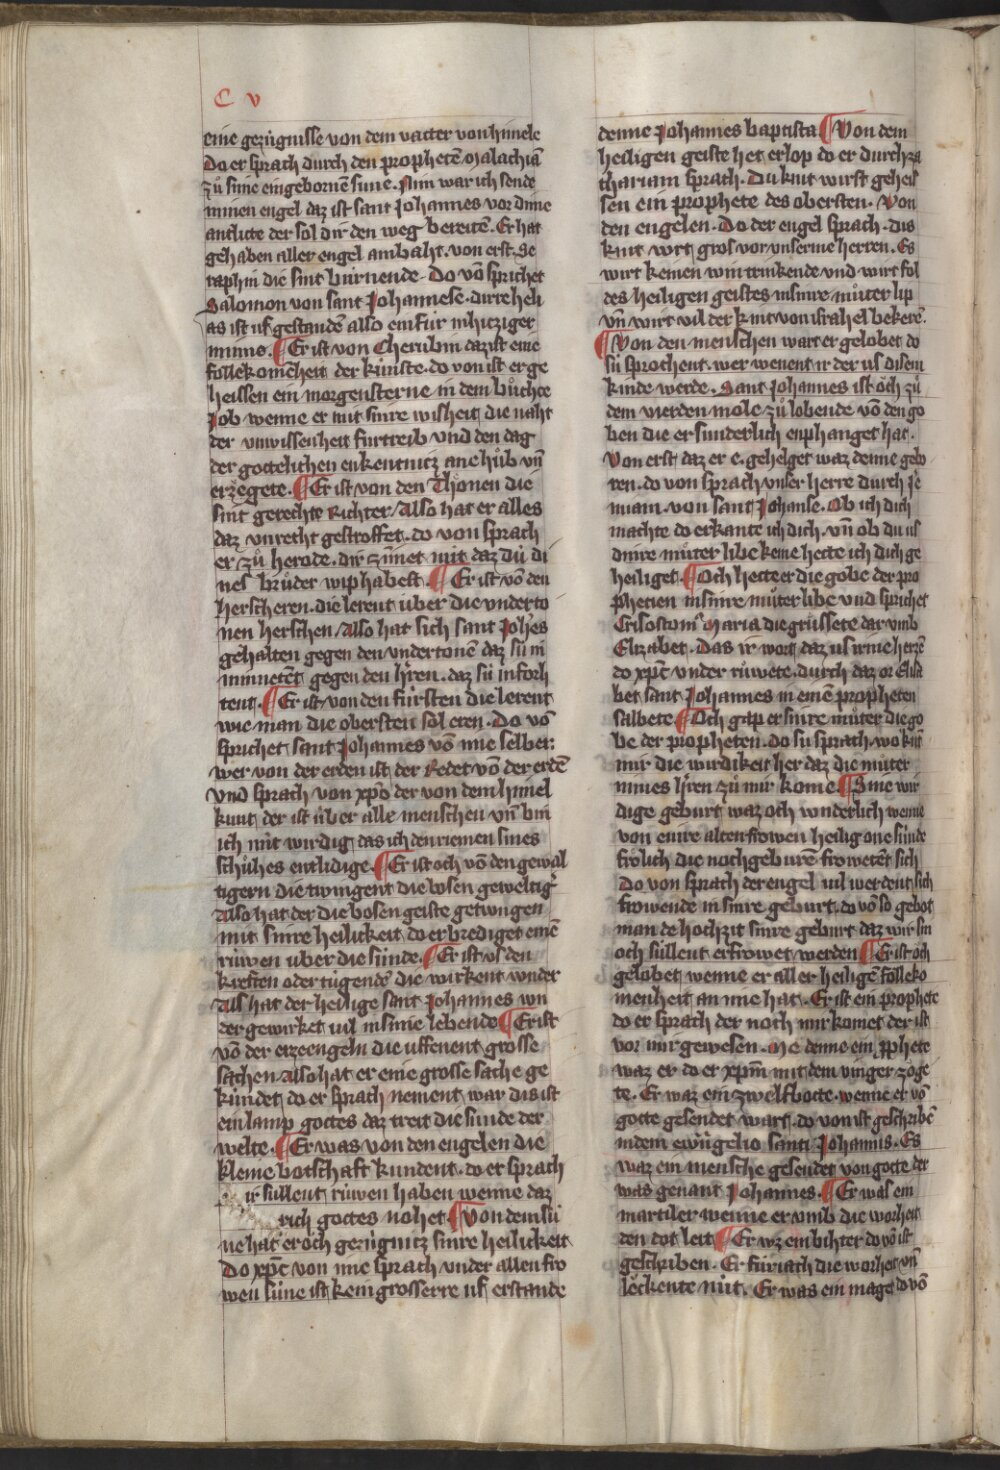 C v
eine gezúgnisse von dem vatter von himele
Do er sprach durch den prophetē Malachiā
zů sime eingebornē sune . Nim war ich sende
minen engel daz ist sant Johannes vor dime
antlitte der sol dir den weg bereitē . Er hat
gehaben aller engel ambaht . von erst . Se
raphin die sint búrnende . Do vō sprichet
Salomon von sant Johannese . dirre heli
as ist uf gestandē also ein fúr in hitziger
minne . ¶ Er ist von Cherubin daz ist eine
follekomēheit der kúnste . do von ist er ge
heissen ein morgensterne in dem bůche
Job wenne er mit sinre wisheit die naht
der unwissenheit fúrtreib und den dag
der gottelichen enkentnitz ane hůb vn̄
erzegete . ¶ Er ist von den Thronen die
sint gerechte Richter / Also hat er alles
daz unrecht gestroffet . do von sprach
er zů herode . dir zimet nit daz dú di
nes brůder wip habest . ¶ Er ist vō den
herscheren . die lerent úber die underto
nen herschen / Also hat sich sant Joh̄es
gehalten gegen den undertonē daz sú in
minnetēt gegen den h̄ren . daz sú in forh
tent . ¶ Er ist von den fúrsten die lerent
wie man die obersten sol eren . Do vō
sprichet sant Johannes vō ime selber :
wer von der erden ist der Redet vō der erdē
Und sprach von xp̄o der von dem himel
kunt der ist úber alle menschen vn̄ bin
ich nút wirdig das ich den riemen sines
schůhes entlidige . ¶ Er ist och vō den gewal
tigern die twingent die bosen geweltiḡ
Also hat der die bosen geiste getwngen
mit sinre heilickeit do er brediget einē
rúwen uber die súnde . ¶ Er ist vs den
kreften oder tugendē die wirkent wnder
Als hat der heilige sant Johannes wn
der gewirket vil in sime lebende ¶ Er ist
vō der erzeengeln die uffenent grosse
sachen . also hat er eine grosse sache ge
kúndet do er sprach nement war dis ist
ein lamp gottes daz treit die sunde der
welte . ¶ Er was von den engelen die
kleine botschaft kundent . do er sprach
ir sullent rúwen haben wenne daz
rich gottes nohet ¶ Von dem sú
ne hat er och gezúgnitz sinre heilickeit
Do xp̄c von ime sprach under allen fro
wen súne ist kein grosserre uf erstande
denne Johannes baptista ¶ Von dem
heiligen geiste het er lop do er durch za
chariam sprach . Du kint wirst geheis
sen ein prophete des obersten . Von
den engelen . Do der engel sprach . dis
kint wrt gros vor unserme herren . Es
wirt keinen win trinkende und wirt fol
des heiligen geistes in sinre můter lip
vn̄ wirt vil der kint von israhel bekerē .
¶ Von den menschen wart er gelobet do
sú sprochent . wer wenent ir der us disem
kinde werde . Sant Johannes ist och zů
dem vierden mole zů lobende vō den go
ben die er sunderlich enphanget hat .
Von erst daz er e . geheilget waz denne gebo
ren . do von sprach unser herre durch Je
miam . von sant Johanse . Ob ich dich
machte do erkante ich dich . vn̄ ob du us
dinre můter libe keme hette ich dich ge
heiliget . ¶ Och hette er die gobe der pro
phetien in sinre můter libe und sprichet
Crisostomꝰ Maria die grússete dar umb
Elizabet . Das ir wort daz us irme hertzē
do xp̄c under růwete . durch daz or Eliza
bet sant Johannes in einē propheten
salbete ¶ Och gap er sinre můter die go
be der propheten . do su sprach . wo kūt
mir die wirdikeit her daz die můter
mines h̄ren zů mir kome ¶ Sine wir
dige geburt waz och wnderlich wenne
von einre alten frowen heilig one súnde
frolich die nochgeburē frowetēt sich
Do von sprach der engel vil werdent sich
frowende in sinre geburt . do vō so gebot
man de hochzit sinre geburt daz wir sin
och súllent erfrowet werden ¶ Er ist och
gelobet wenne er aller heiligē folleko
menheit an ime hat . Er ist ein prophete
do er sprach der noch mir komet der ist
vor mir gewesen . Me denne ein p̄phete
waz er do er xp̄m mit dem vinger zoge
te . Er waz ein zwelfbotte . wenne er vō
gotte gesendet wart . do von ist geschribē
in dem ewūgelio santi Johannis . Es
waz ein mensche gesendet von gotte der
was genant Johannes . ¶ Er was ein
martiler wenne er umb die worheit
den dot leit ¶ Er wz ein bihter do vō ist
geschriben . Er furiach die worheit vn̄
lockente nút . Er was ein maget do vō